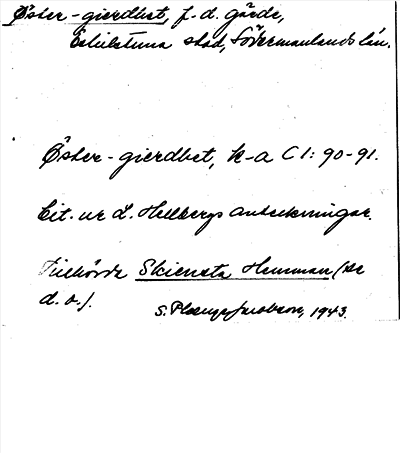 Öster-gierdhet, f.d. gärde,
Eskilstuna stad, Södermanlands län.
Öster-gierdhet, k-a C 1: 90-91.
Cit. ur L. Hellbergs anteckningar.
Tillhörde Skiensta Hemman (se
d.o.).
S. 1943.